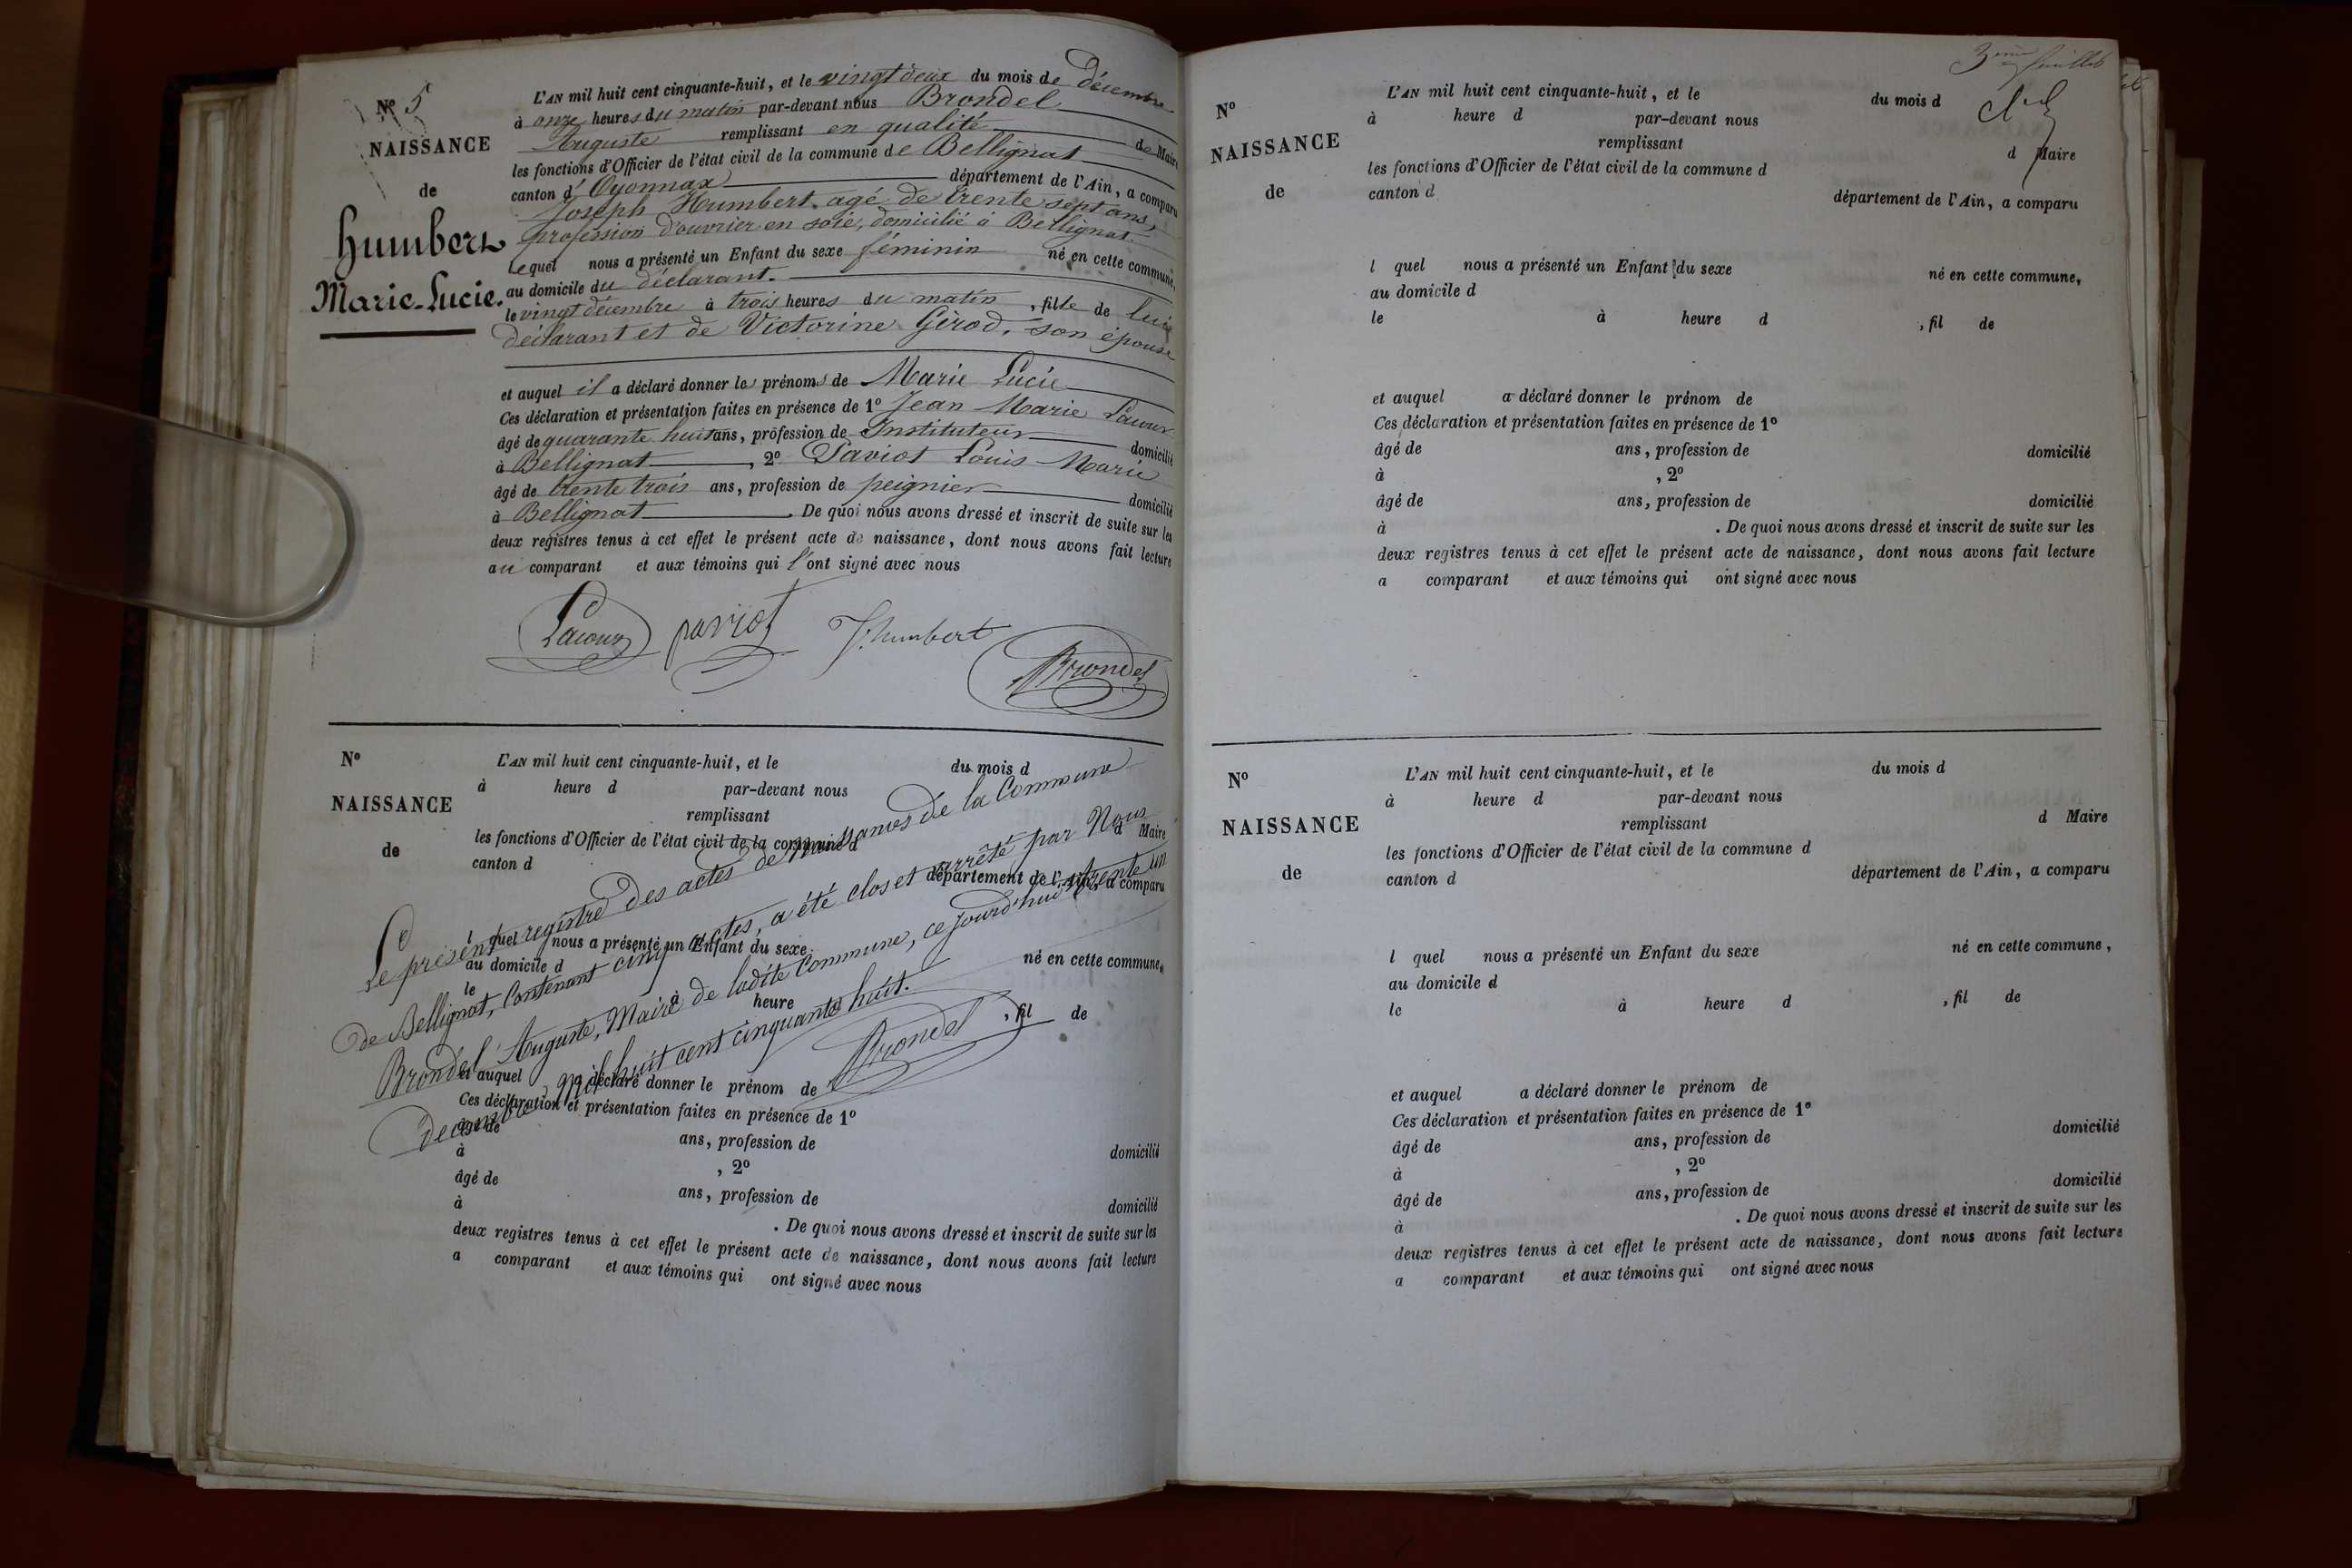 N° 5
NAISSANCE
de
Humbert
Marie-Lucie.
L'AN mil huit cent cinquante-huit, et le vingt deux du mois de Décembre
à onze heures du matin par-devant nous Brondel
Auguste remplissant en qualité de Maire
les fonctions d'Officier de l'état civil de la commune de Bellignat
canton d'Oyonnax département de l'Ain, a comparu
Joseph Humbert, agé de trente sept ans,
profession d'ouvrier en soie, domicilié à Bellignat.
Lequel nous a présenté un Enfant du sexe féminin né en cette commune,
au domicile du déclarant.
le vingt décembre à trois heures du matin, fille de lui
déclarant et de Victorine Gérod, son épouse
et auquel il a déclaré donner les prénoms de Marie Lucie
Ces déclaration et présentation faites en présence de 1° Jean Marie Lacour
âgé de quarante huit ans, profession de Instituteur domicilié
à Bellignat, 2° Paviot Louis Marie
âgé de trente trois ans, profession de peignier domicilié
à Bellignat. De quoi nous avons dressé et inscrit de suite sur les
deux registres tenus à cet effet le présent acte de naissance, dont nous avons fait lecture
au comparant et aux témoins qui l'ont signé avec nous
Lacour paviot J. humbert
Brondel
N°
NAISSANCE
de
L'AN mil huit cent cinquante-huit, et le du mois d
à heure d par-devant nous
remplissant d Maire
les fonctions d'Officier de l'état civil de la commune d
canton d département de l'Ain, a comparu
l quel nous a présenté un Enfant du sexe né en cette commune,
au domicile d
le à heure , fil de
et auquel a déclaré donner le prénom de
Ces déclaration et présentation faites en présence de 1°
âgé de ans, profession de domicilié
à , 2°
âgé de ans, profession de domicilié
à . De quoi nous avons dressé et inscrit de suite sur les
deux registres tenus à cet effet le présent acte de naissance, dont nous avons fait lecture
a comparant et aux témoins qui ont signé avec nous
Le présent registre des actes de Naissances de la Commune
de Bellignat, Contenant cinq actes, a été clos et arrêté par Nous
Brondel Auguste, Maire de ladite Commune, ce jourd'hui trente un
décembre mil huit cent cinquante huit.
Brondel
3ème feuillet
N°
NAISSANCE
de
L'AN mil huit cent cinquante-huit, et le du mois d
à heure d par-devant nous
remplissant d Maire
les fonctions d'Officier de l'état civil de la commune d
canton d département de l'Ain, a comparu
l quel nous a présenté un Enfant du sexe né en cette commune,
au domicile d
le à heure d , fil de
et auquel a déclaré donner le prénom de
Ces déclaration et présentation faites en présence de 1°
âgé de ans, profession de domicilié
à , 2°
âgé de ans, profession de domicilié
à . De quoi nous avons dressé et inscrit de suite sur les
deux registres tenus à cet effet le présent acte de naissance, dont nous avons fait lecture
a comparant et aux témoins qui ont signé avec nous
N°
NAISSANCE
de
L'AN mil huit cent cinquante-huit, et le du mois d
à heure d par-devant nous
remplissant d Maire
les fonctions d'Officier de l'état civil de la commune d
canton d département de l'Ain, a comparu
l quel nous a présenté un Enfant du sexe né en cette commune,
au domicile d
le à heure d , fil de
et auquel a déclaré donner le prénom de
Ces déclaration et présentation faites en présence de 1°
âgé de ans, profession de domicilié
à , 2°
âgé de ans, profession de domicilié
à . De quoi nous avons dressé et inscrit de suite sur les
deux registres tenus à cet effet le présent acte de naissance, dont nous avons fait lecture
a comparant et aux témoins qui ont signé avec nous